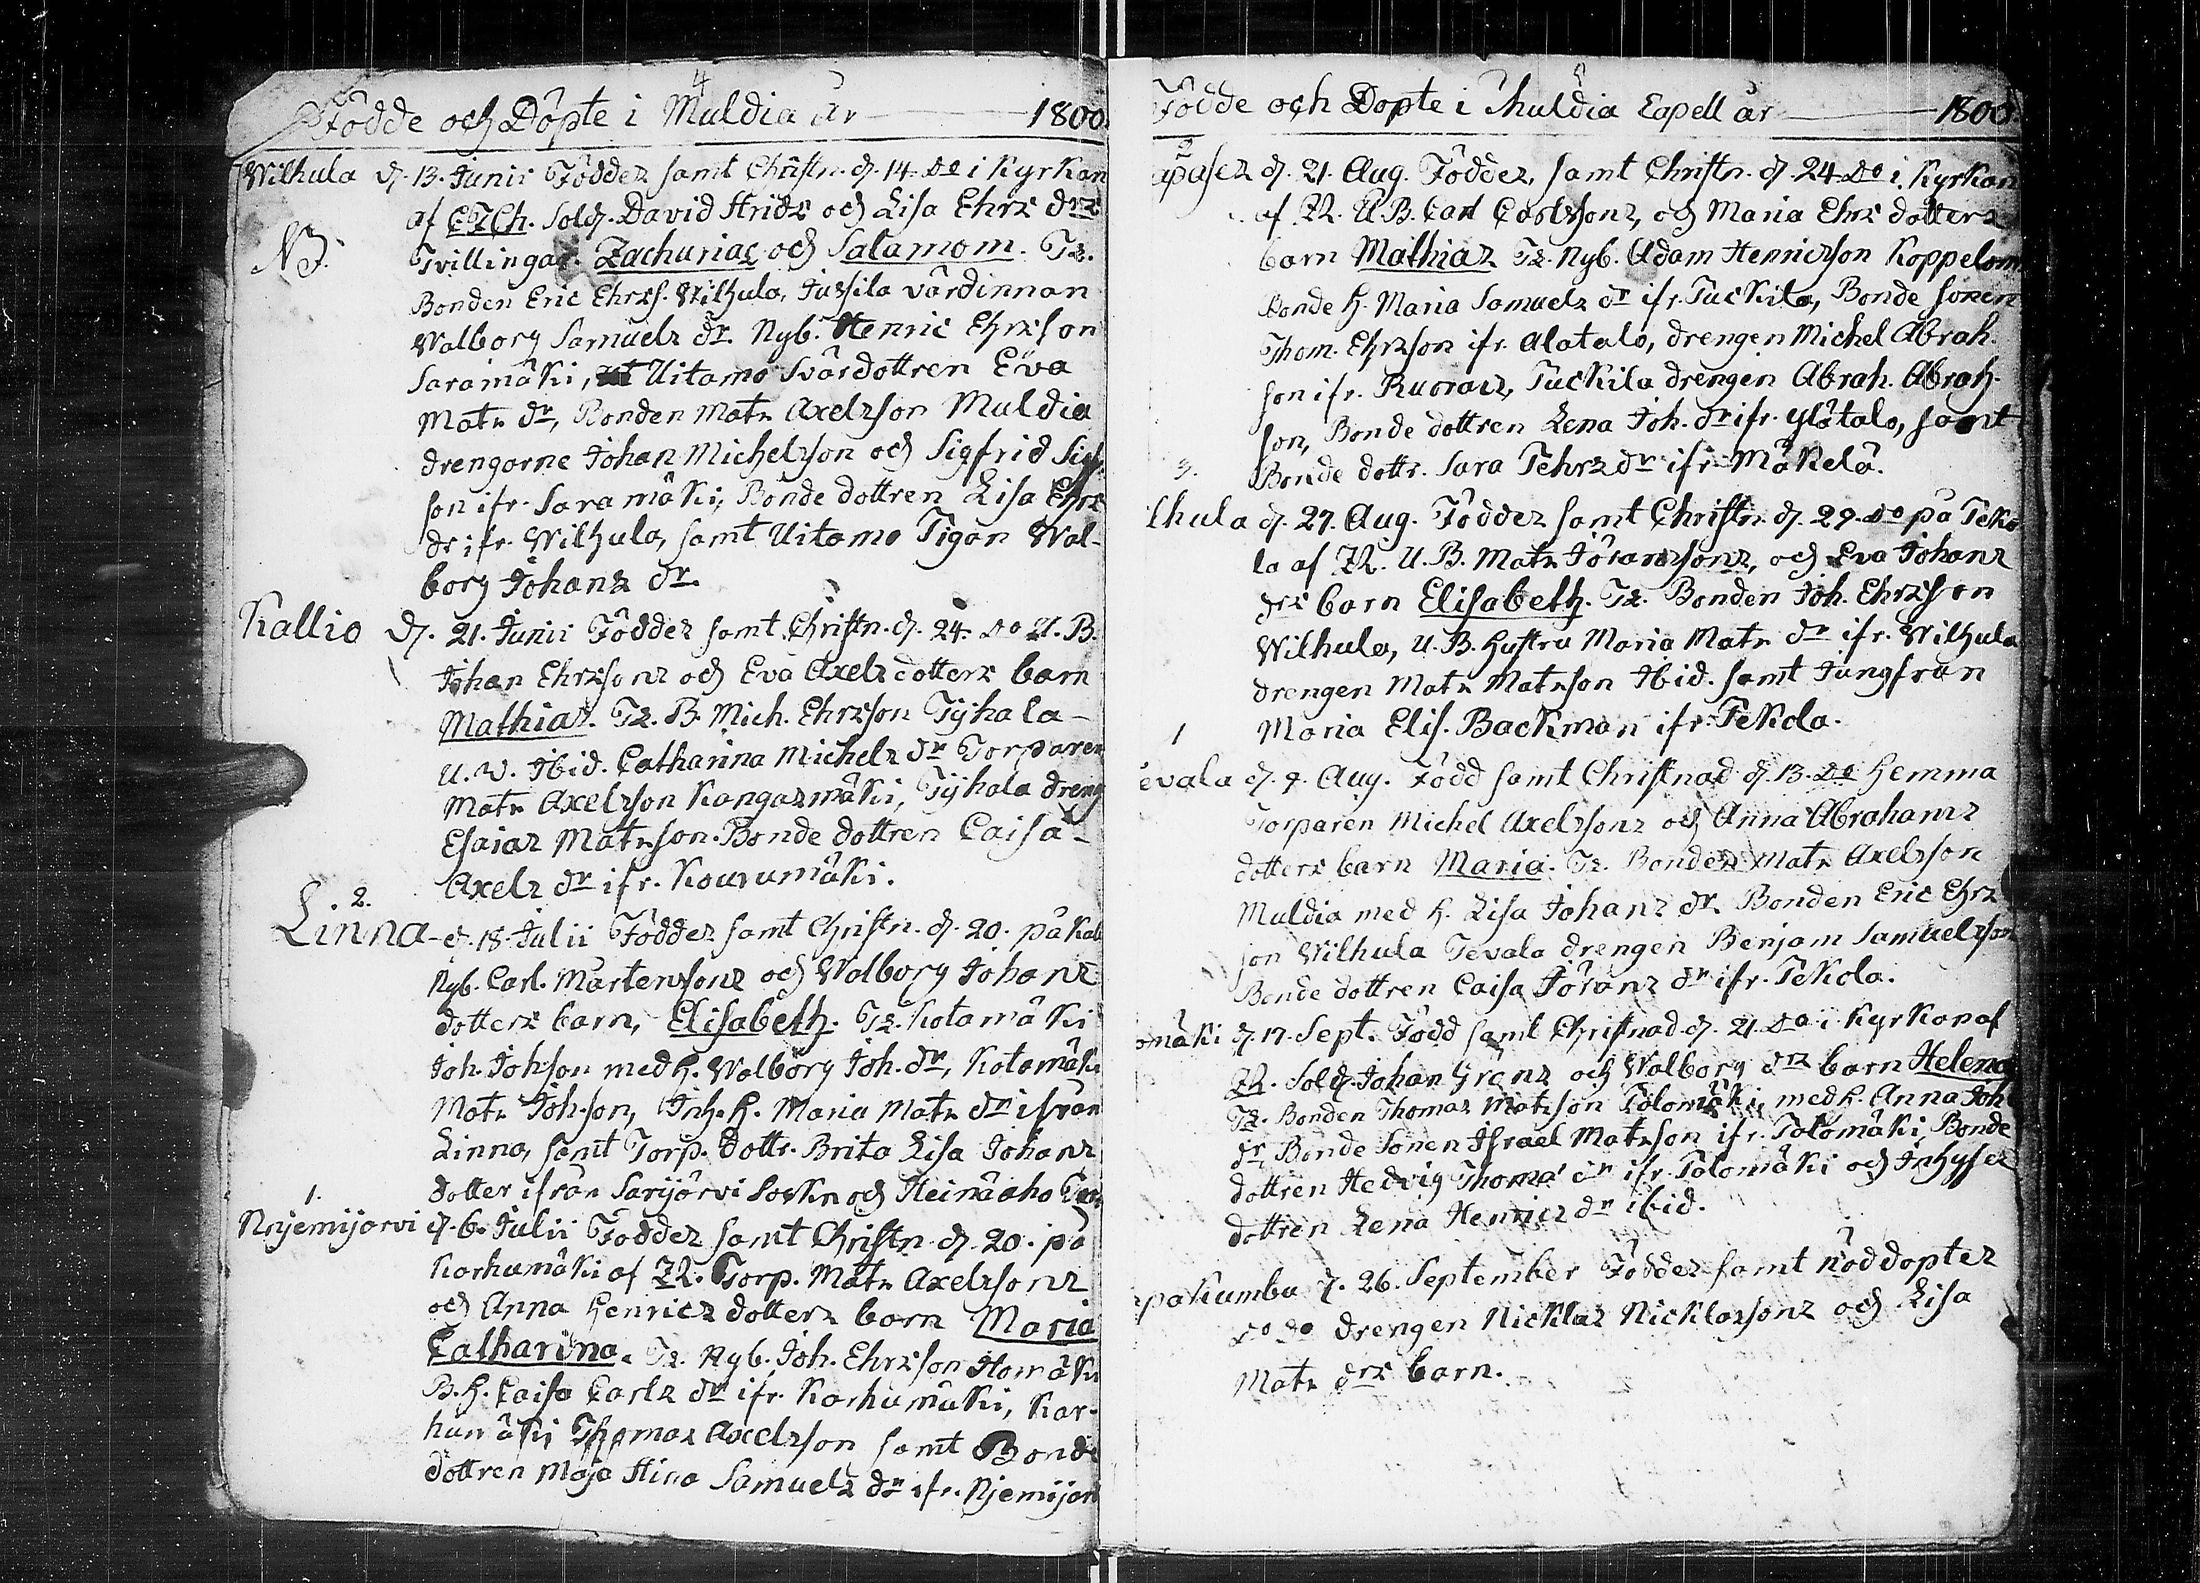 4
Födde och Döpte i Muldia år 1800
Wilhula d. 13. Junii Föddes samt Christn. d. 14. do i Kyrkan
af Sold. David Strids och Lisa Ehrs drs
NB. Tvillingar. Zacharias och Salamom. Ts.
Bonden Eric Ehrss. Wilhula, Jussila värdinnan
Walborg Samuels dr. Nyb. Henric Ehrsson
Saramäki, Uitamo Svärdottren Eva
Mats dr, Bonden Mats Axelsson Muldia
drengarne Johan Michelsson och Sigfrid Sigf.
son ifr. Saramäki, Bonde dottren Lisa Ehrs
dr ifr. Wilhula, samt Uitamo Pigan Wal-
borg Johans dr.
Kallio d. 21. Junii Föddes samt Christn. d. 24. do U.B.
Johan Ehrssons och Eva Axels dotters barn
Mathias. Ts. B. Mich. Ehrsson Tyhala-
U.V. Ibid. Catharina Michels dr Torparen
Mats Axelsson Kangasmäki, Tyhala dreng
Esaias Matsson. Bonde dottren Caisa
Axels dr ifr. Kouvumäki.
2.
Linna d. 18. Julii Föddes samt Christn. d. 20. på Kal
Nyb. Carl. Mårtenssons och Walborg Johans
dotters barn, Elisabeth. Ts. Kotamäki
Joh. Johsson med h. Walborg Joh. dr, Kotamäki
Mats Johsson, Inh. h. Maria Mats dr ifrån
Linna, samt Torp. dottr. Brita Lisa Johans
dotter ifrån Sarijärvi Sockn och Heinäaho
1.
Niemijärvi d. 6. Julii Föddes samt Christn. d. 20. på
Karhumäki af Torp. Mats Axelssons
och Anna Henrics dotters barn Maria
Catharina. Ts. Nyb. Joh. Ehrsson Homäki
B.h. Caisa Carls dr ifr. Karhumäki, Kar-
humäki Thomas Axelsson samt Bonde
dottren Maja Stina Samuels dr ifr. Niemijärvi
Födde och Döpte i Muldia Capell år 1800.
2
d. 21. Aug. Föddes, samt Christn. d. 24 do i Kyrkan
af U.B. Carl Carlssons, och Maria Ehrs dotters
barn Mathias Ts. Nyb. Adam Henricsson Koppelom
Bonde h. Maria Samuels dr ifr. Tuckila, Bonde sonen
Thom. Ehrsson ifr. Alatalo, drengen Michel Abrah.
son ifr. Tuckila drengen Abrah. Abrah-
son, Bonde dottren Lena Joh. dr ifr. Ylötalo, samt
Bonde dottr. Sara Tehrs dr ifr. Mäkelä.
3.
lhula d. 27. Aug. Föddes samt Christn. d. 29. do på Teko
la af U.B. Mats Jöranssons, och Eva Johans
drs barn Elisabeth. Ts. Bonden Joh. Ehrsson
Wilhula, U.B. hustru Maria Mats dr ifr. Wilhula
drengen Mats Matsson Ibid. samt Jungfrun
Maria Elis. Backman ifr. Tekola.
1
evala d. 9. Aug. Född samt Christnad d. 13. do hemma
Torparen Michel Axelssons och Anna Abrahams
dotters barn Maria. Ts. Bonden Mats Axelsson
Muldia med h. Lisa Johans dr. Bonden Eric Ehrs
son Wilhula Tevala drengen Benjam Samuelsson
Bonde dottren Caisa Jörans dr ifr. Tekola.
omäki d. 17. Sept. Född samt Christnad d. 21 do i Kyrkan af
Sold. Johan Gröns och Walborg drs barn Helena
Ts. Bonden Thomas Matsson Tolomäki, med h. Anna Joh
dr Bonde Sonen Israel Matsson ifr. Tolomäki, Bonde
dottren Hedvig Thomæ dr ifr. Tolomäki och Inhyses
dottren Lena Henrics dr ibid.
pakumbu d. 26. September Föddes samt nöddöptes
do drengen Nicklas Nicklassons och Lisa
Mats drs barn.